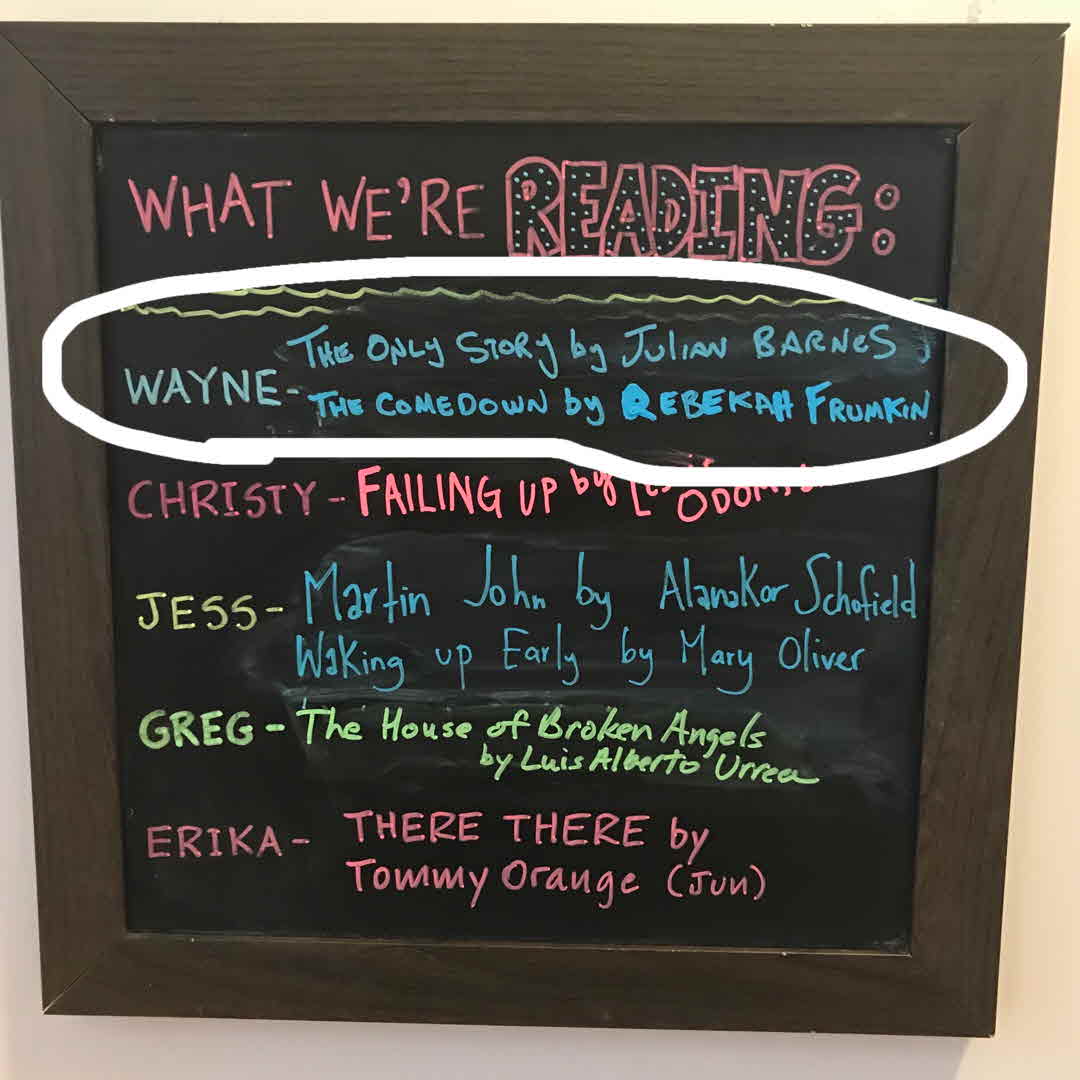 WHAT WE'RE READING:
THE ONLY STORY by JULIAN BARNES,
WAYNE- THE COMEDOWN by REBEKAH FRUMKIN
CHRISTY - FAILING UP by
JESS - Martin John by AlanaKar Schofield
Waking up Early by Mary Oliver
GREG - The House of Broken Angels
by Luis Alberto Urrea
ERIKA - THERE THERE by
Tommy Orange (JUN)